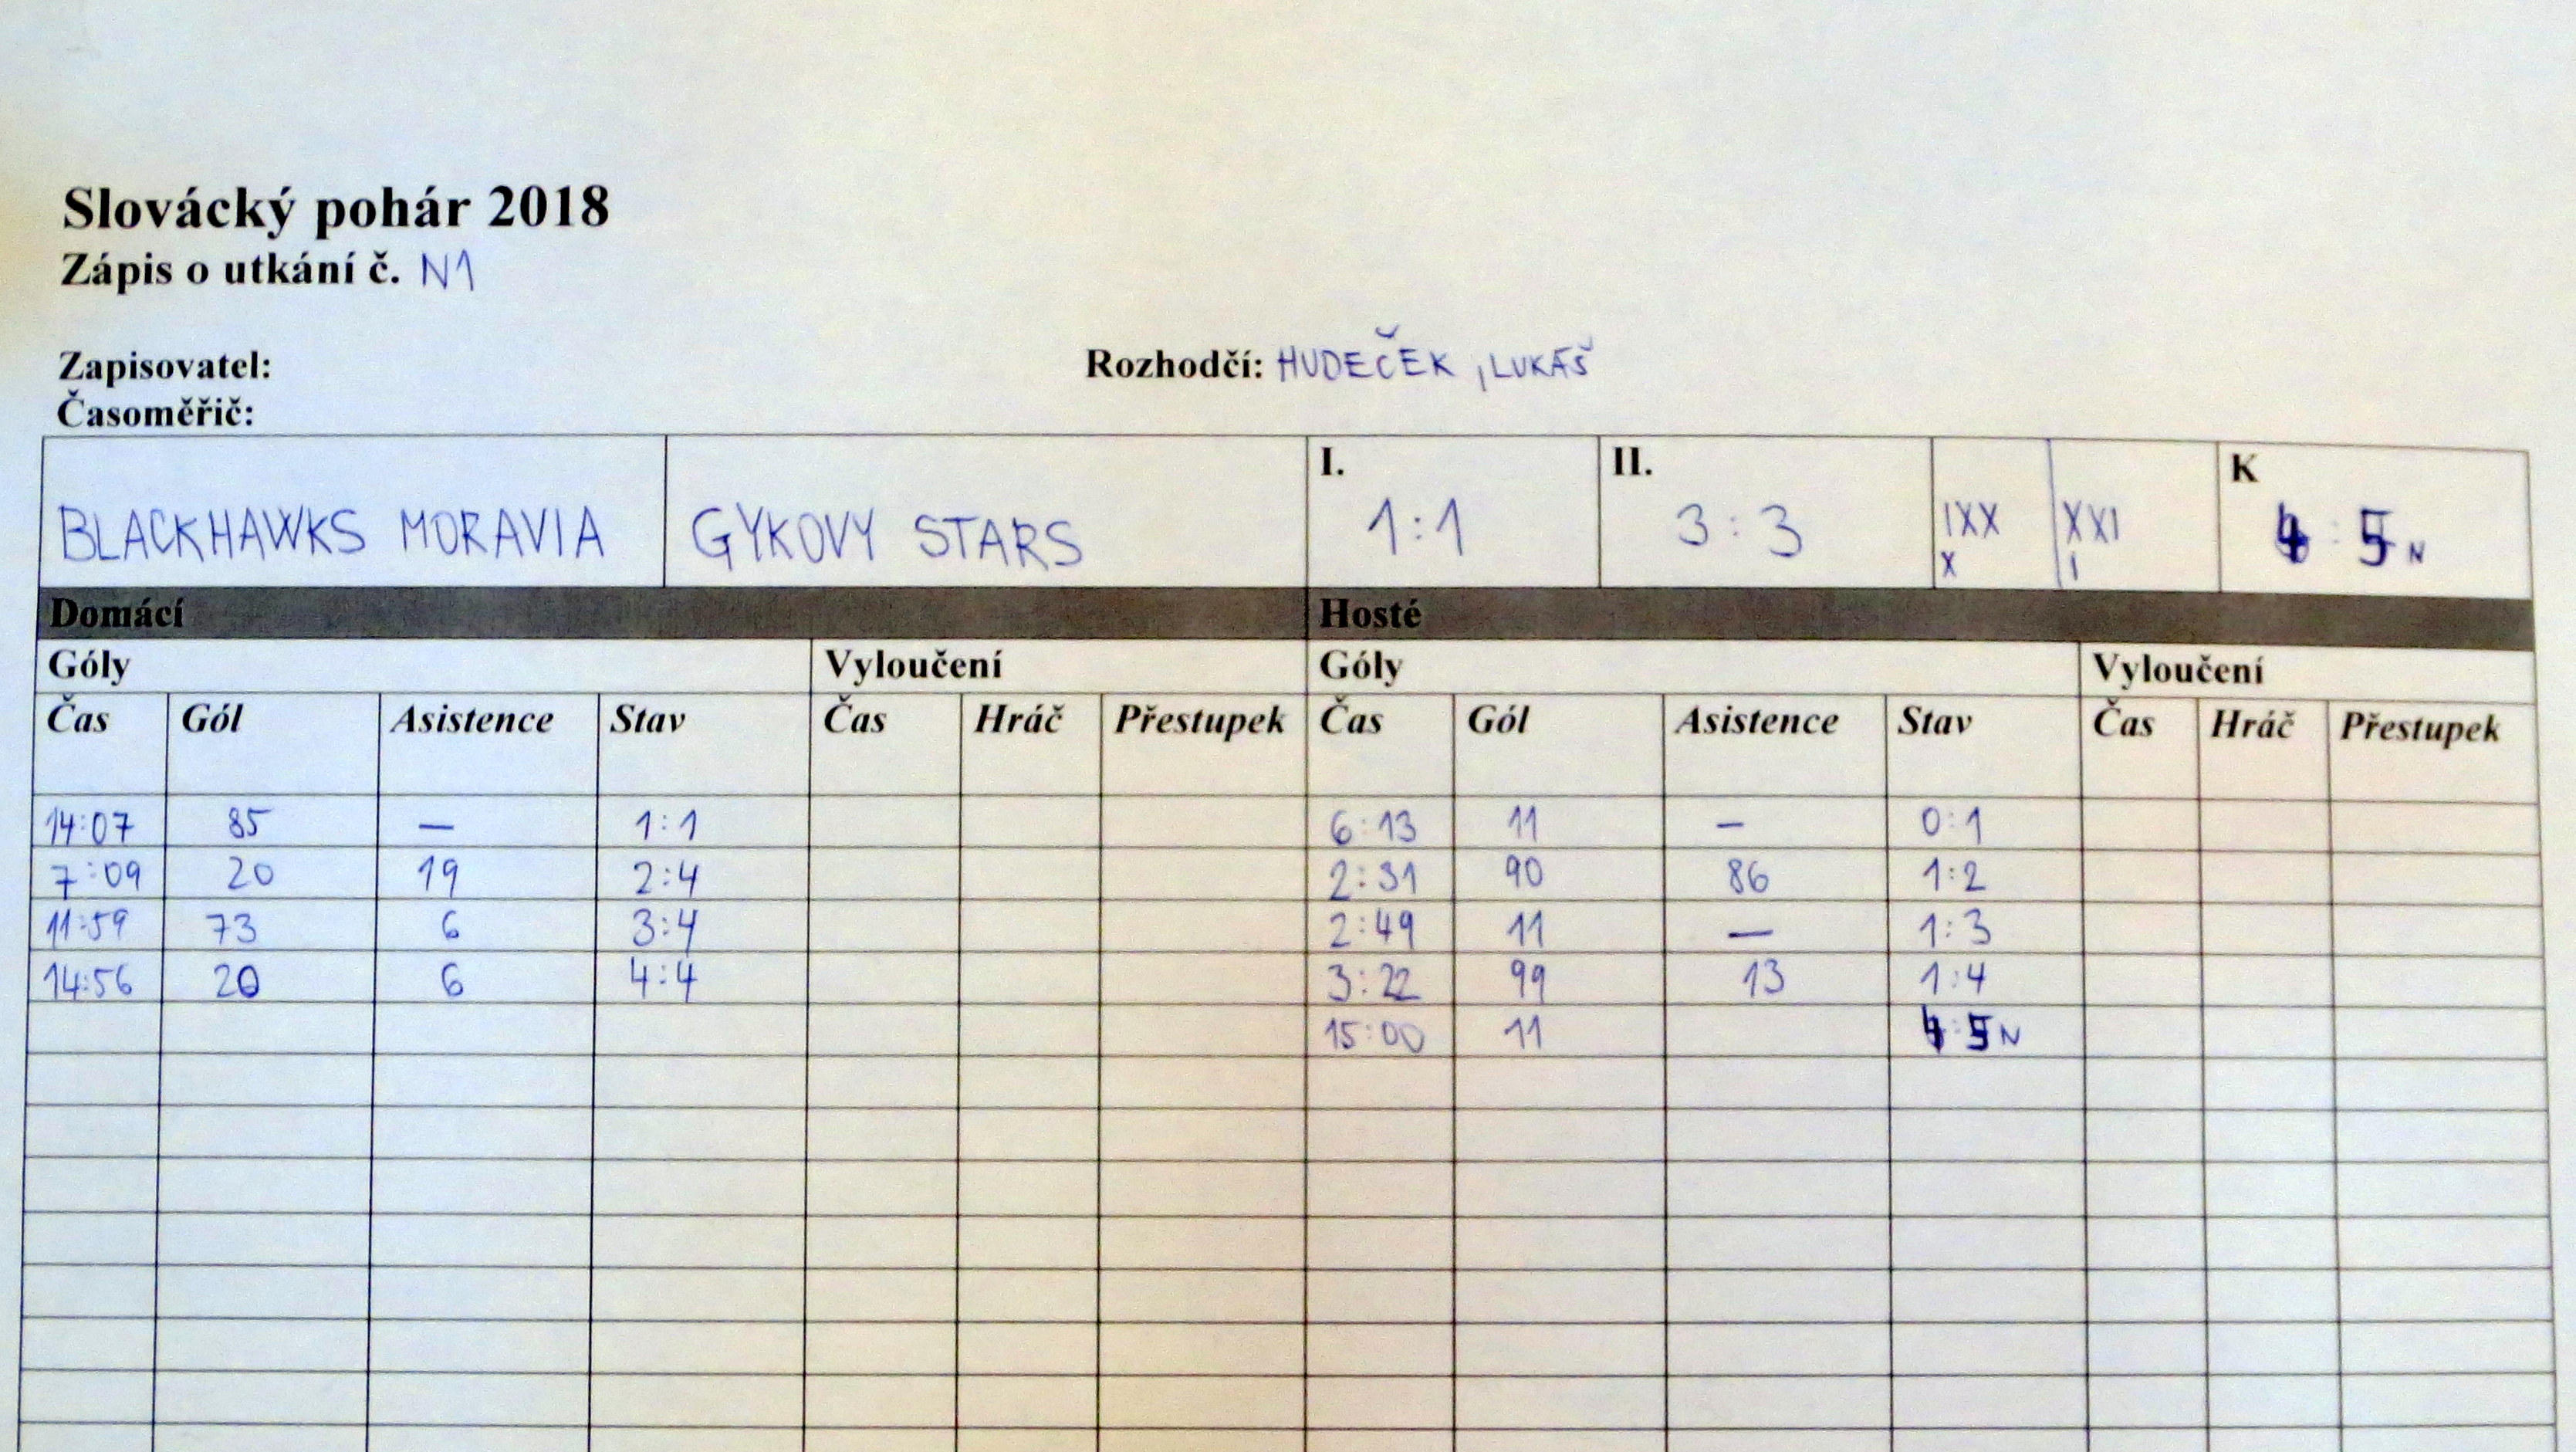 Slovácký pohár 2018
Zápis o utkání č. N1
Zapisovatel: Rozhodčí: HUDEČEK, LUKÁŠ
Časoměřič:
I. II. K
BLACKHAWKS MORAVIA GYKOVY STARS 1:1 3:3 IXX XXI 4:5 N
X I
Domácí Hosté
Góly Vyloučení Góly Vyloučení
Čas Gól Asistence Stav Čas Hráč Přestupek Čas Gól Asistence Stav Čas Hráč Přestupek
14:07 85 — 1:1 6:13 11 — 0:1
7:09 20 19 2:4 2:31 90 86 1:2
11:59 73 6 3:4 2:49 11 — 1:3
14:56 20 6 4:4 3:22 99 13 1:4
15:00 11 4:5 N